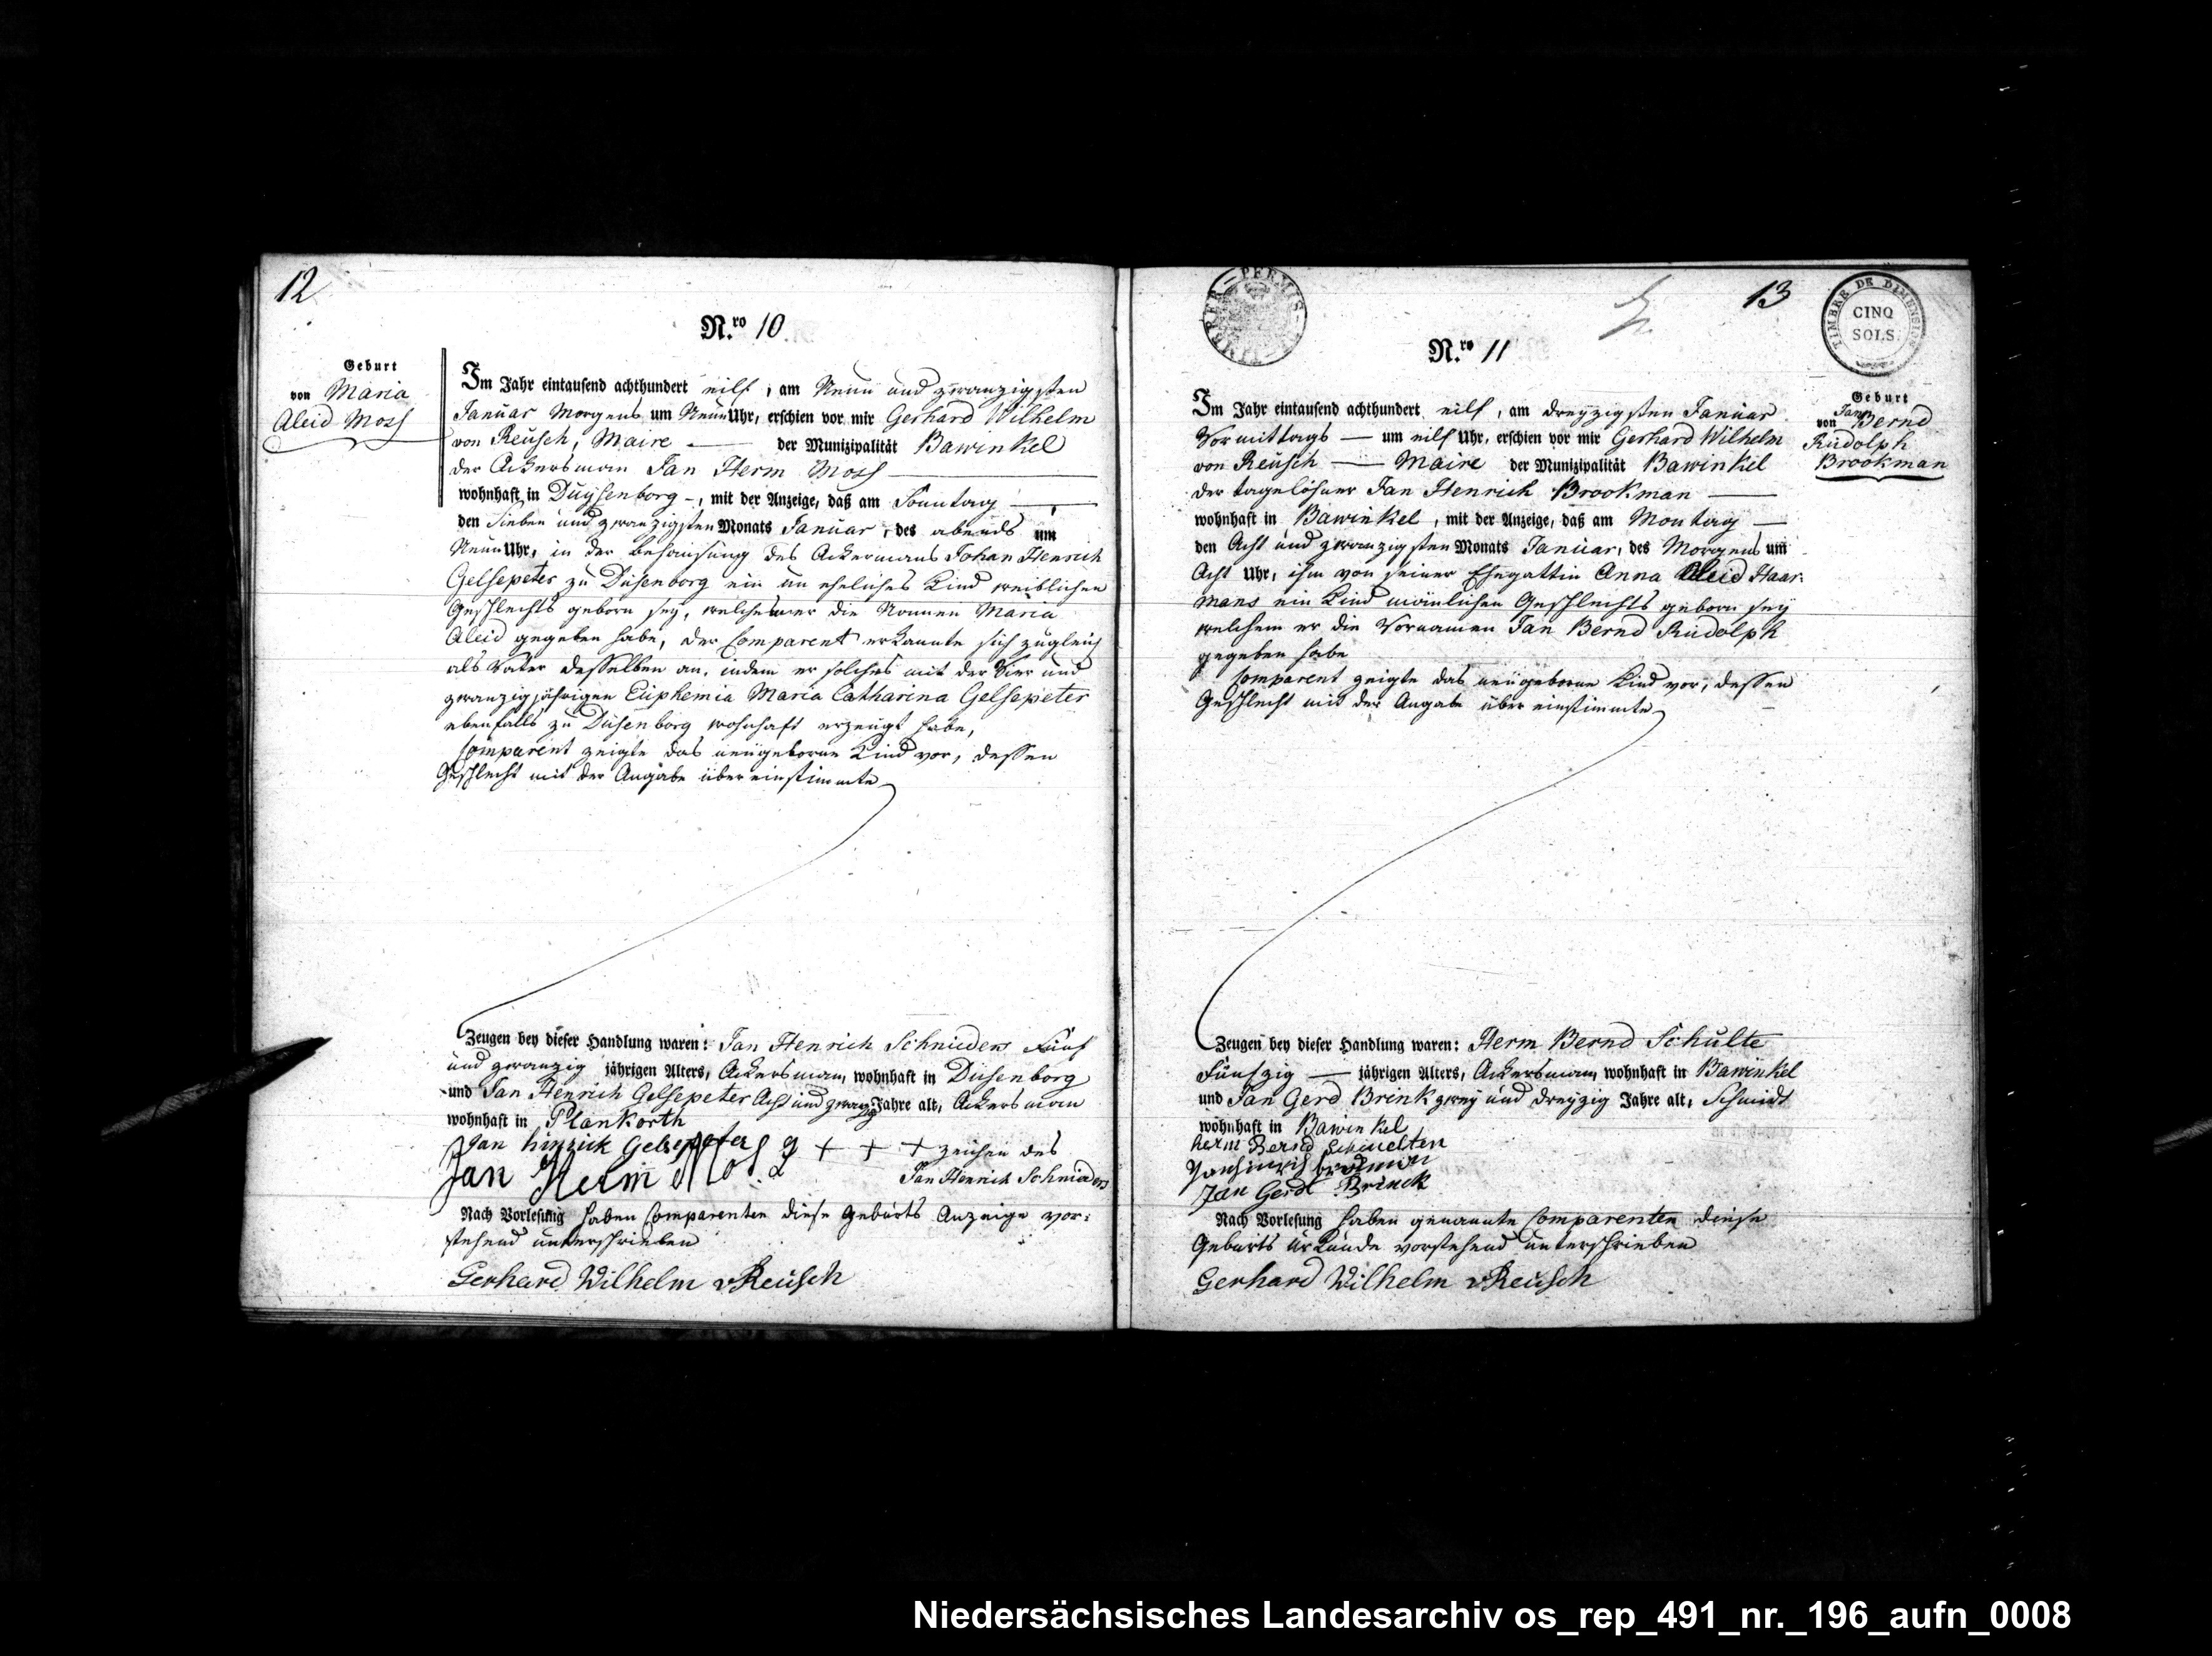 12
N.ro 10
Geburt
von Maria
Aleid Moss
Im Jahr eintausend achthundert eilf, am Neun und zwanzigsten
Januar Morgens um Neun Uhr, erschien vor mir Gerhard Wilhelm
von Reusch, Maire der Munizipalität Bawinkel
der Ackersman Jan Herm Moss
wohnhaft in Duysenborg, mit der Anzeige, daß am Sonntag
den Sieben und zwanzigsten Monats Januar, des abends um
Neun Uhr, in der Behausung des Ackermans Johan Henrich
Gelsepeter zu Düsenborg ein un eheliches Kind weiblichen
Geschlechts geborn sey, welchem er die Namen Maria
Aleid gegeben habe, der Comparent erkannte sich zugleich
als Vater desselben an, indem er solches mit der Vier und
zwanzigjährigen Euphemia Maria Catharina Gelsepeter
ebenfalls zu Düsenborg wohnhaft erzeugt habe,
Comparent zeigte das neugeborne Kind vor, dessen
Geschlecht mit der Angabe übereinstimmte
Zeugen bey dieser Handlung waren: Jan Henrich Schnieders Fünf
und zwanzig jährigen Alters, Ackersman, wohnhaft in Düsenborg
und Jan Henrich Gelsepeter Acht und zwanzig Jahre alt, Ackersman
wohnhaft in Plankorth
Jan hinrick Gelsepeter + + + zeichen des
Jan Herm Moss Jan Henrich Schnieders
Nach Vorlesung haben Comparenten diese Geburts Anzeige vor:
stehend unterschrieben
Gerhard Wilhelm vReusch
13
TIMBRE DE DIMENSION
CINQ
SOLS.
N.ro 11
Geburt
von Jan Bernd
Rudolph
Brookman
Im Jahr eintausend achthundert eilf, am dreyzigsten Januar
Vormittags um eilf Uhr, erschien vor mir Gerhard Wilhelm
von Reusch Maire der Munizipalität Bawinkel
der tagelöhner Jan Henrich Brookman
wohnhaft in Bawinkel, mit der Anzeige, daß am Montag
den Acht und zwanzigsten Monats Januar, des Morgens um
Acht Uhr, ihm von seiner Ehegattin Anna Aleid Haar:
mans ein Kind mänlichen Geschlechts geborn sey
welchem er die Vornamen Jan Bernd Rudolph
gegeben habe
Comparent zeigte das neugeborne Kind vor, dessen
Geschlecht mit der Angabe übereinstimmte
Zeugen bey dieser Handlung waren: Herm Bernd Schulte
Fünfzig jährigen Alters, Ackersman, wohnhaft in Bawinkel
und Jan Gerd Brink zwey und dreyzig Jahre alt, Schmidt
wohnhaft in Bawinkel
herm Bernd Schuelten
Janhinrich brokman
Jan Gerdt Brinck
Nach Vorlesung haben genannte Comparenten diese
Geburts Urkunde vorstehend unterschrieben
Gerhard Wilhelm vReusch
Niedersächsisches Landesarchiv os_rep_491_nr._196_aufn_0008